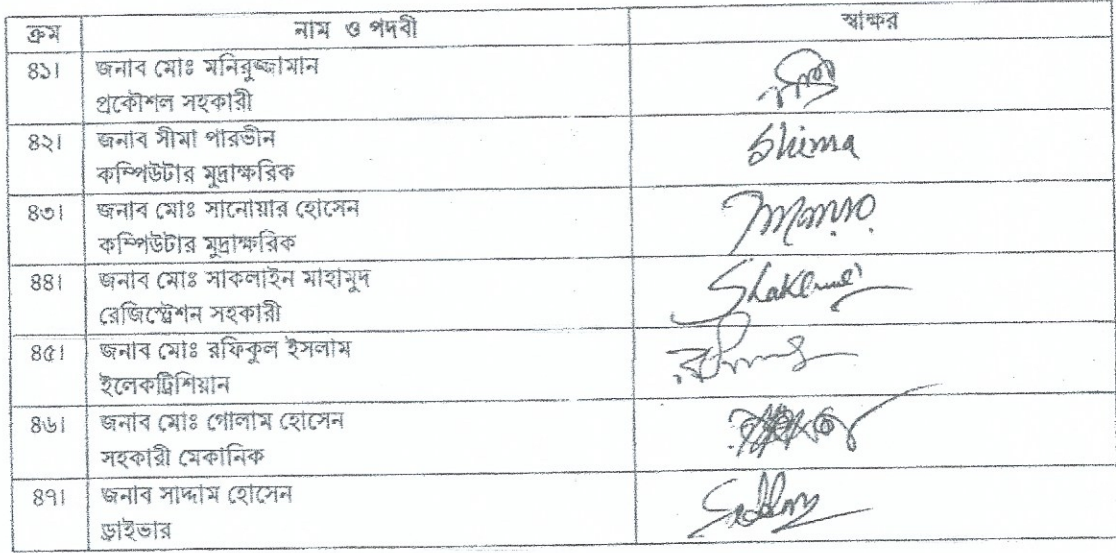 ক্রম নাম ও পদবী স্বাক্ষর
৪১। জনাব মোঃ মনিরুজ্জামান
প্রকৌশল সহকারী
৪২। জনাব সীমা পারভীন Shima
কম্পিউটার মুদ্রাক্ষরিক
৪৩। জনাব মোঃ সানোয়ার হোসেন
কম্পিউটার মুদ্রাক্ষরিক
৪৪। জনাব মোঃ সাকলাইন মাহামুদ
রেজিস্ট্রেশন সহকারী
৪৫। জনাব মোঃ রফিকুল ইসলাম
ইলেকট্রিশিয়ান
৪৬। জনাব মোঃ গোলাম হোসেন
সহকারী মেকানিক
৪৭। জনাব সাদ্দাম হোসেন
ড্রাইভার